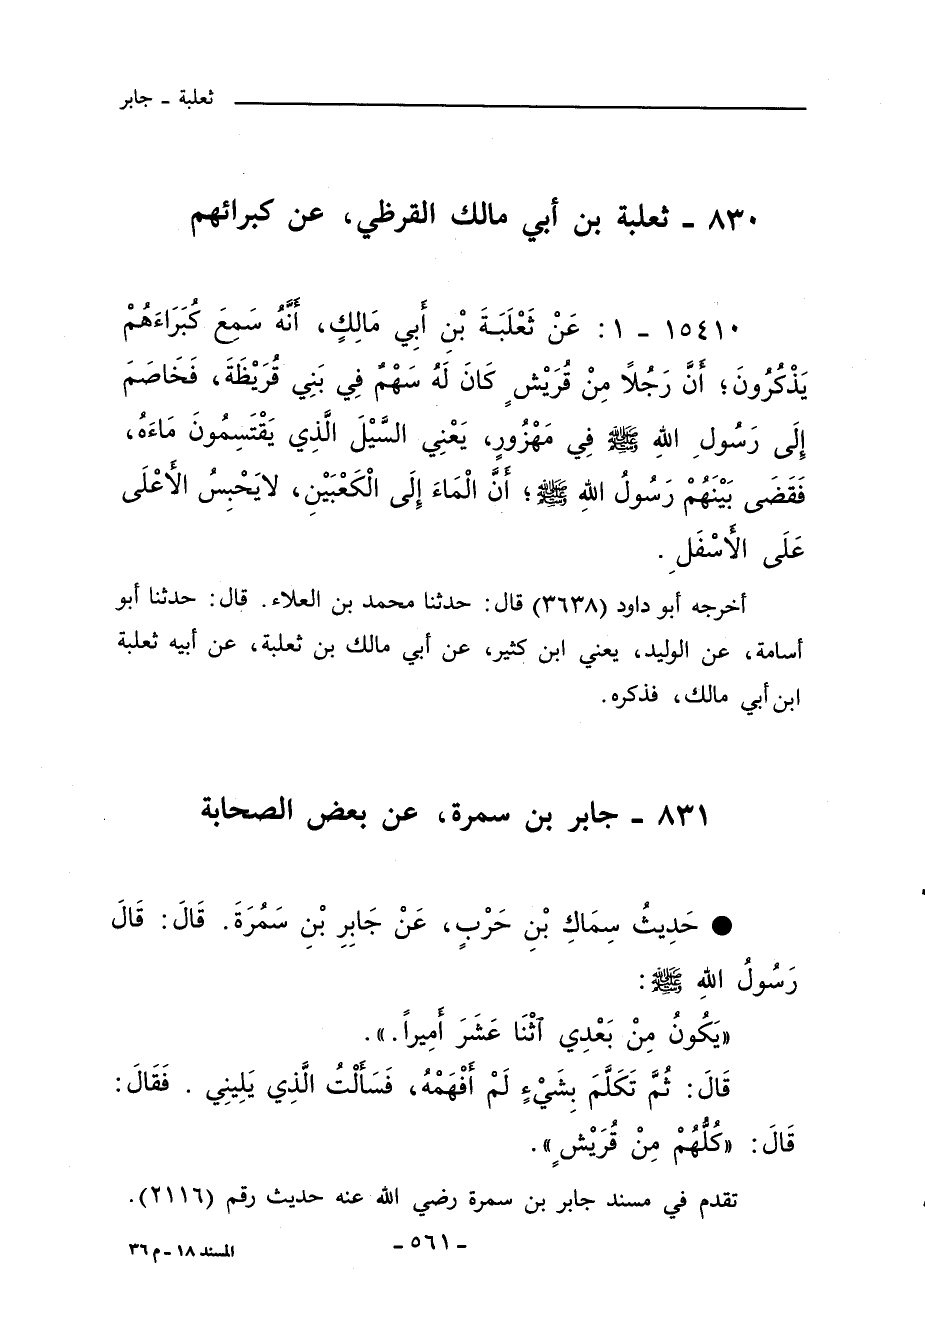 ثعلبة ـ جابر
٨٣٠ ـ ثعلبة بن أبي مالك القرظي، عن كبرائهم
١٥٤١٠ ـ ١ : عَنْ ثَعْلَبَةَ بْنِ أَبِي مَالِكٍ، أَنَّهُ سَمِعَ كُبَرَاءَهُمْ
يَذْكُرُونَ؛ أَنَّ رَجُلاً مِنْ قُرَيْشٍ كَانَ لَهُ سَهْمٌ فِي بَنِي قُرَيْظَةَ، فَخَاصَمَ
إِلَى رَسُولِ اللهِ ﷺ فِي مَهْزُورٍ، يَعْنِي السَّيْلَ الَّذِي يَقْتَسِمُونَ مَاءَهُ،
فَقَضَى بَيْنَهُمْ رَسُولُ اللهِ ﷺ؛ أَنَّ الْمَاءَ إِلَى الْكَعْبَيْنِ، لاَيَحْبِسُ الأَعْلَى
عَلَى الأَسْفَلِ .
أخرجه أبو داود (٣٦٣٨) قال: حدثنا محمد بن العلاء. قال: حدثنا أبو
أسامة، عن الوليد، يعني ابن كثير، عن أبي مالك بن ثعلبة، عن أبيه ثعلبة
ابن أبي مالك، فذكره.
٨٣١ ـ جابر بن سمرة، عن بعض الصحابة
● حَدِيثُ سِمَاكِ بْنِ حَرْبٍ، عَنْ جَابِرِ بْنِ سَمُرَةَ. قَالَ: قَالَ
رَسُولُ اللهِ ﷺ:
«يَكُونُ مِنْ بَعْدِي ٱثْنَا عَشَرَ أَمِيراً.».
قَالَ: ثُمَّ تَكَلَّمَ بِشَيْءٍ لَمْ أَفْهَمْهُ، فَسَأَلْتُ الَّذِي يَلِينِي . فَقَالَ:
قَالَ: «كُلُّهُمْ مِنْ قُرَيْشٍ».
تقدم في مسند جابر بن سمرة رضي الله عنه حديث رقم (٢١١٦).
ـ ٥٦١ ـ
المسند ١٨ ـ م ٣٦